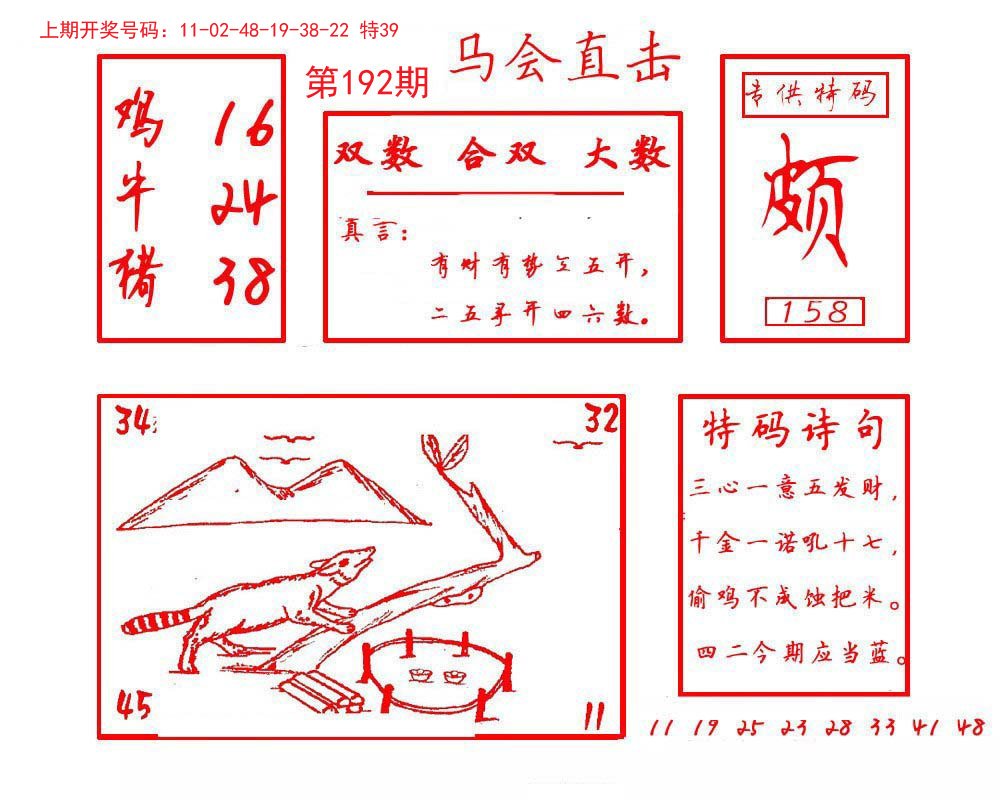 上期开奖号码：11-02-48-19-38-22 特39
马会直击
第192期
鸡 16
牛 24
猪 38
双数 合双 大数
真言：
有财有势 五开，
二五寻开四六数。
专供特码
颇
158
34
32
45
11
特码诗句
三心一意五发财，
千金一诺吼十七，
偷鸡不成蚀把米。
四二今期应当蓝。
11 19 25 23 28 33 41 48